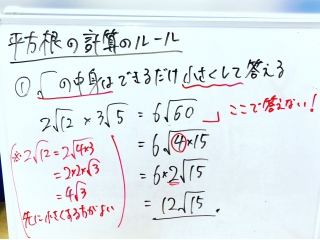 平方根の計算のルール
① √の中身はできるだけ小さくして答える
2√12 × 3√5 = 6√60 ここで答えない!
= 6√4×15
= 6×2√15
= 12√15.
※ 2√12 = 2√4×3
= 2×2×√3
= 4√3
先に小さくする方がよい